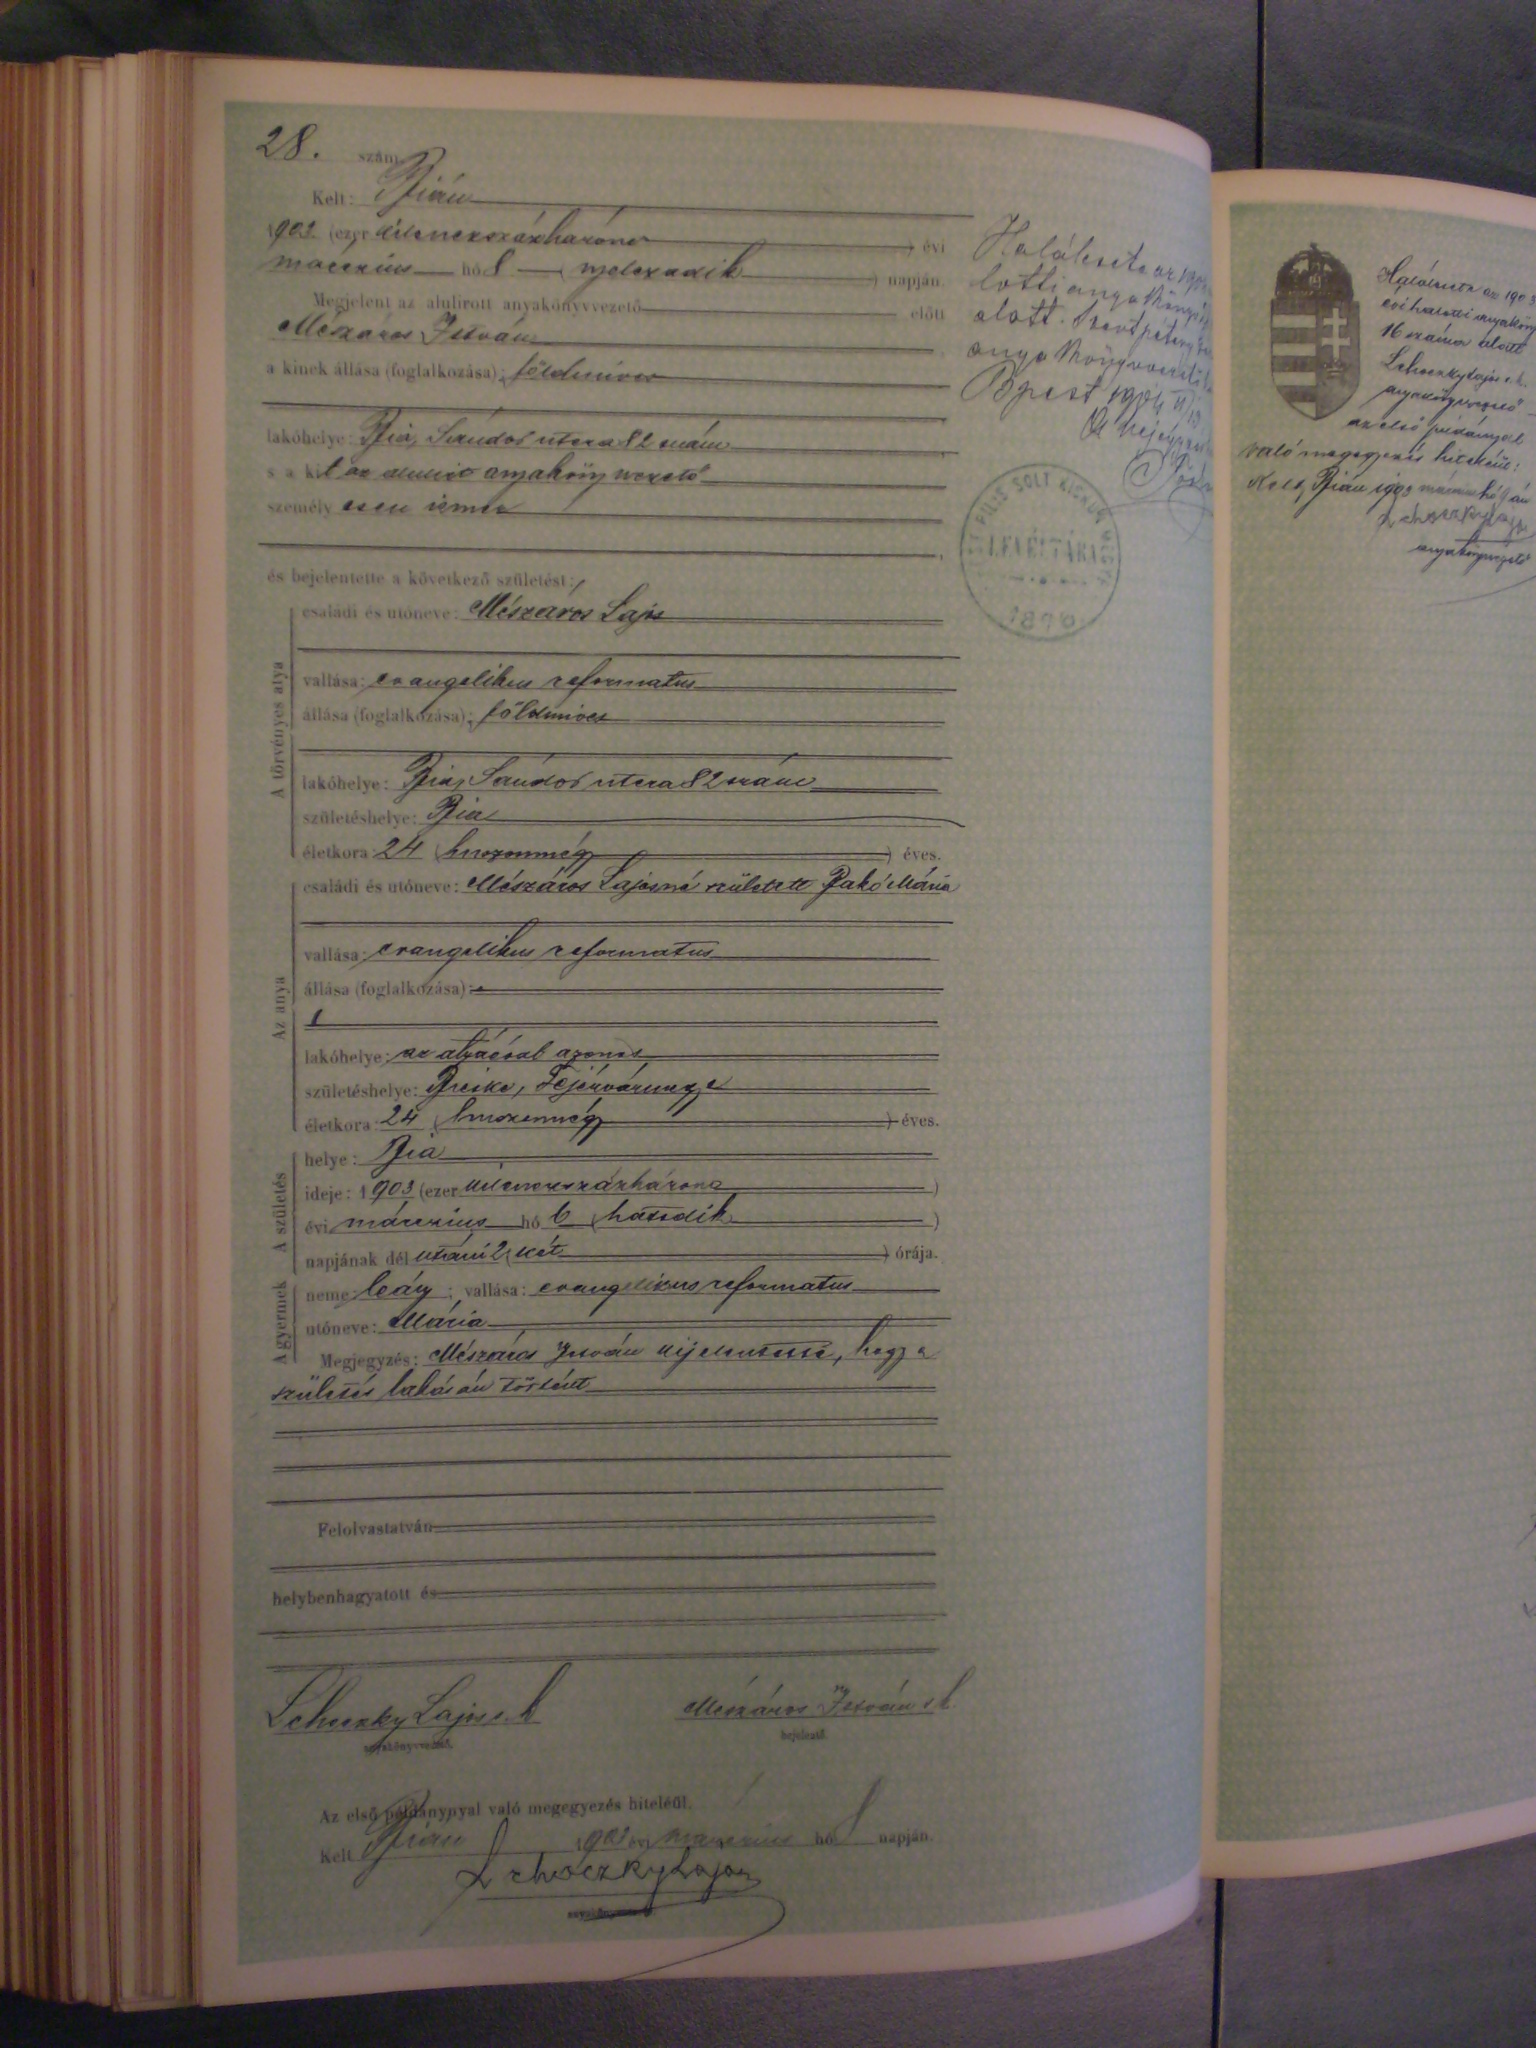 28. szám
Kelt: Bián
1903 (ezer kilenczszázhárom) évi
márczius hó 8 (nyolczadik) napján.
Megjelent az alulirott anyakönyvvezető előtt
Mészáros István
a kinek állása (foglalkozása): földmives
lakóhelye: Bia, Sándor utcza 82 szám
s a kit az alulirt anyakönyvvezető
személyesen ismer
és bejelentette a következő születést:
A törvényes atya
családi és utóneve: Mészáros Lajos
vallása: evangelikus reformatus
állása (foglalkozása): földmives
lakóhelye: Bia, Sándor utcza 82 szám
születéshelye: Bia
életkora: 24 (huszonnégy) éves.
Az anya
családi és utóneve: Mészáros Lajosné született Pakó Mária
vallása: evangelikus reformatus
állása (foglalkozása):
lakóhelye: az atyáéval azonos
születéshelye: Bicske, Fejérvármegye
életkora: 24 (huszonnégy) éves.
A születés
helye: Bia
ideje: 1903 (ezer kilenczszázhárom)
évi márczius hó 6 (hatodik)
napjának dél utáni 2 (két) órája.
A gyermek
neme: leány; vallása: evangelikus reformatus
utóneve: Mária
Megjegyzés: Mészáros István kijelentette, hogy a
születés lakásán történt
Felolvastatván
helybenhagyatott és
Lehoczky Lajos s. k.
anyakönyvvezető.
Mészáros István s. k.
bejelentő.
Az első példánynyal való megegyezés hiteléül.
Kelt Bián 1903 évi márczius hó 8 napján.
Lehoczky Lajos
Halálesete az
lotti anyakönyv
alatt. Szentpéterf
anyakönyvvezető
Bpest
PEST PILIS SOLT KISKUN MEGYE
LEVÉLTÁRA
Halálesete az 1903
évi halotti anyakönyv
16 száma alatt
Lehoczky Lajos s. k.
anyakönyvvezető
az első példánnyal
való megegyezés hiteléül:
Kelt, Bián 1903 márczius hó
Lehoczky Lajos
anyakönyvvezető